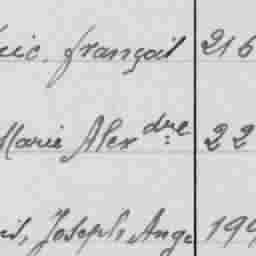 français 216
Marie Alexdre 22
Joseph, Ange 199